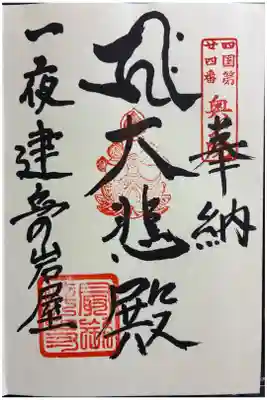 四国第
廿四番
奥
奉納
大悲殿
一夜建立の岩屋